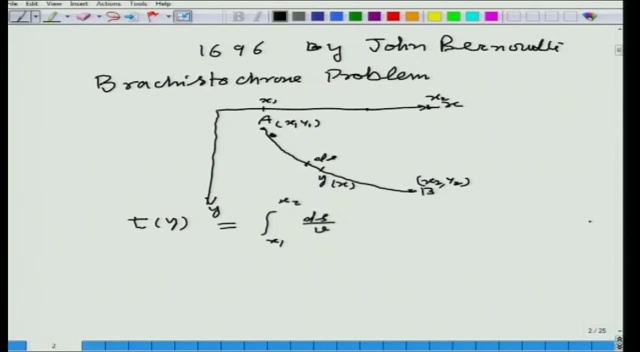 Edit View Insert Actions Tools Help
1696 by John Bernoulli
Brachistochrone Problem
x₁ x₂ x
A (x₁, y₁)
ds
y(x)
(x₂, y₂)
B
y
t(y) = ∫ₓ₁ˣ² ds/v
2 / 25
2